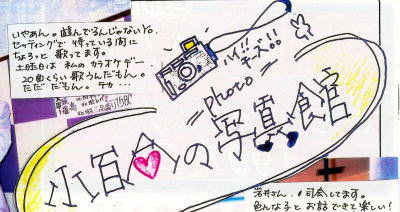 いやぁん。遊んでるんじゃないYo。
セッティングで待っている間に
ちょろっと歌ってます。
土曜日は私のカラオケデー。
20曲くらい歌うんだもん。
ただだもん。テカ…
ハイ!!
チーズ!!
photo
小百合の写真館
岩井さん、
司会してます。
色んなこと お話できて楽しい!